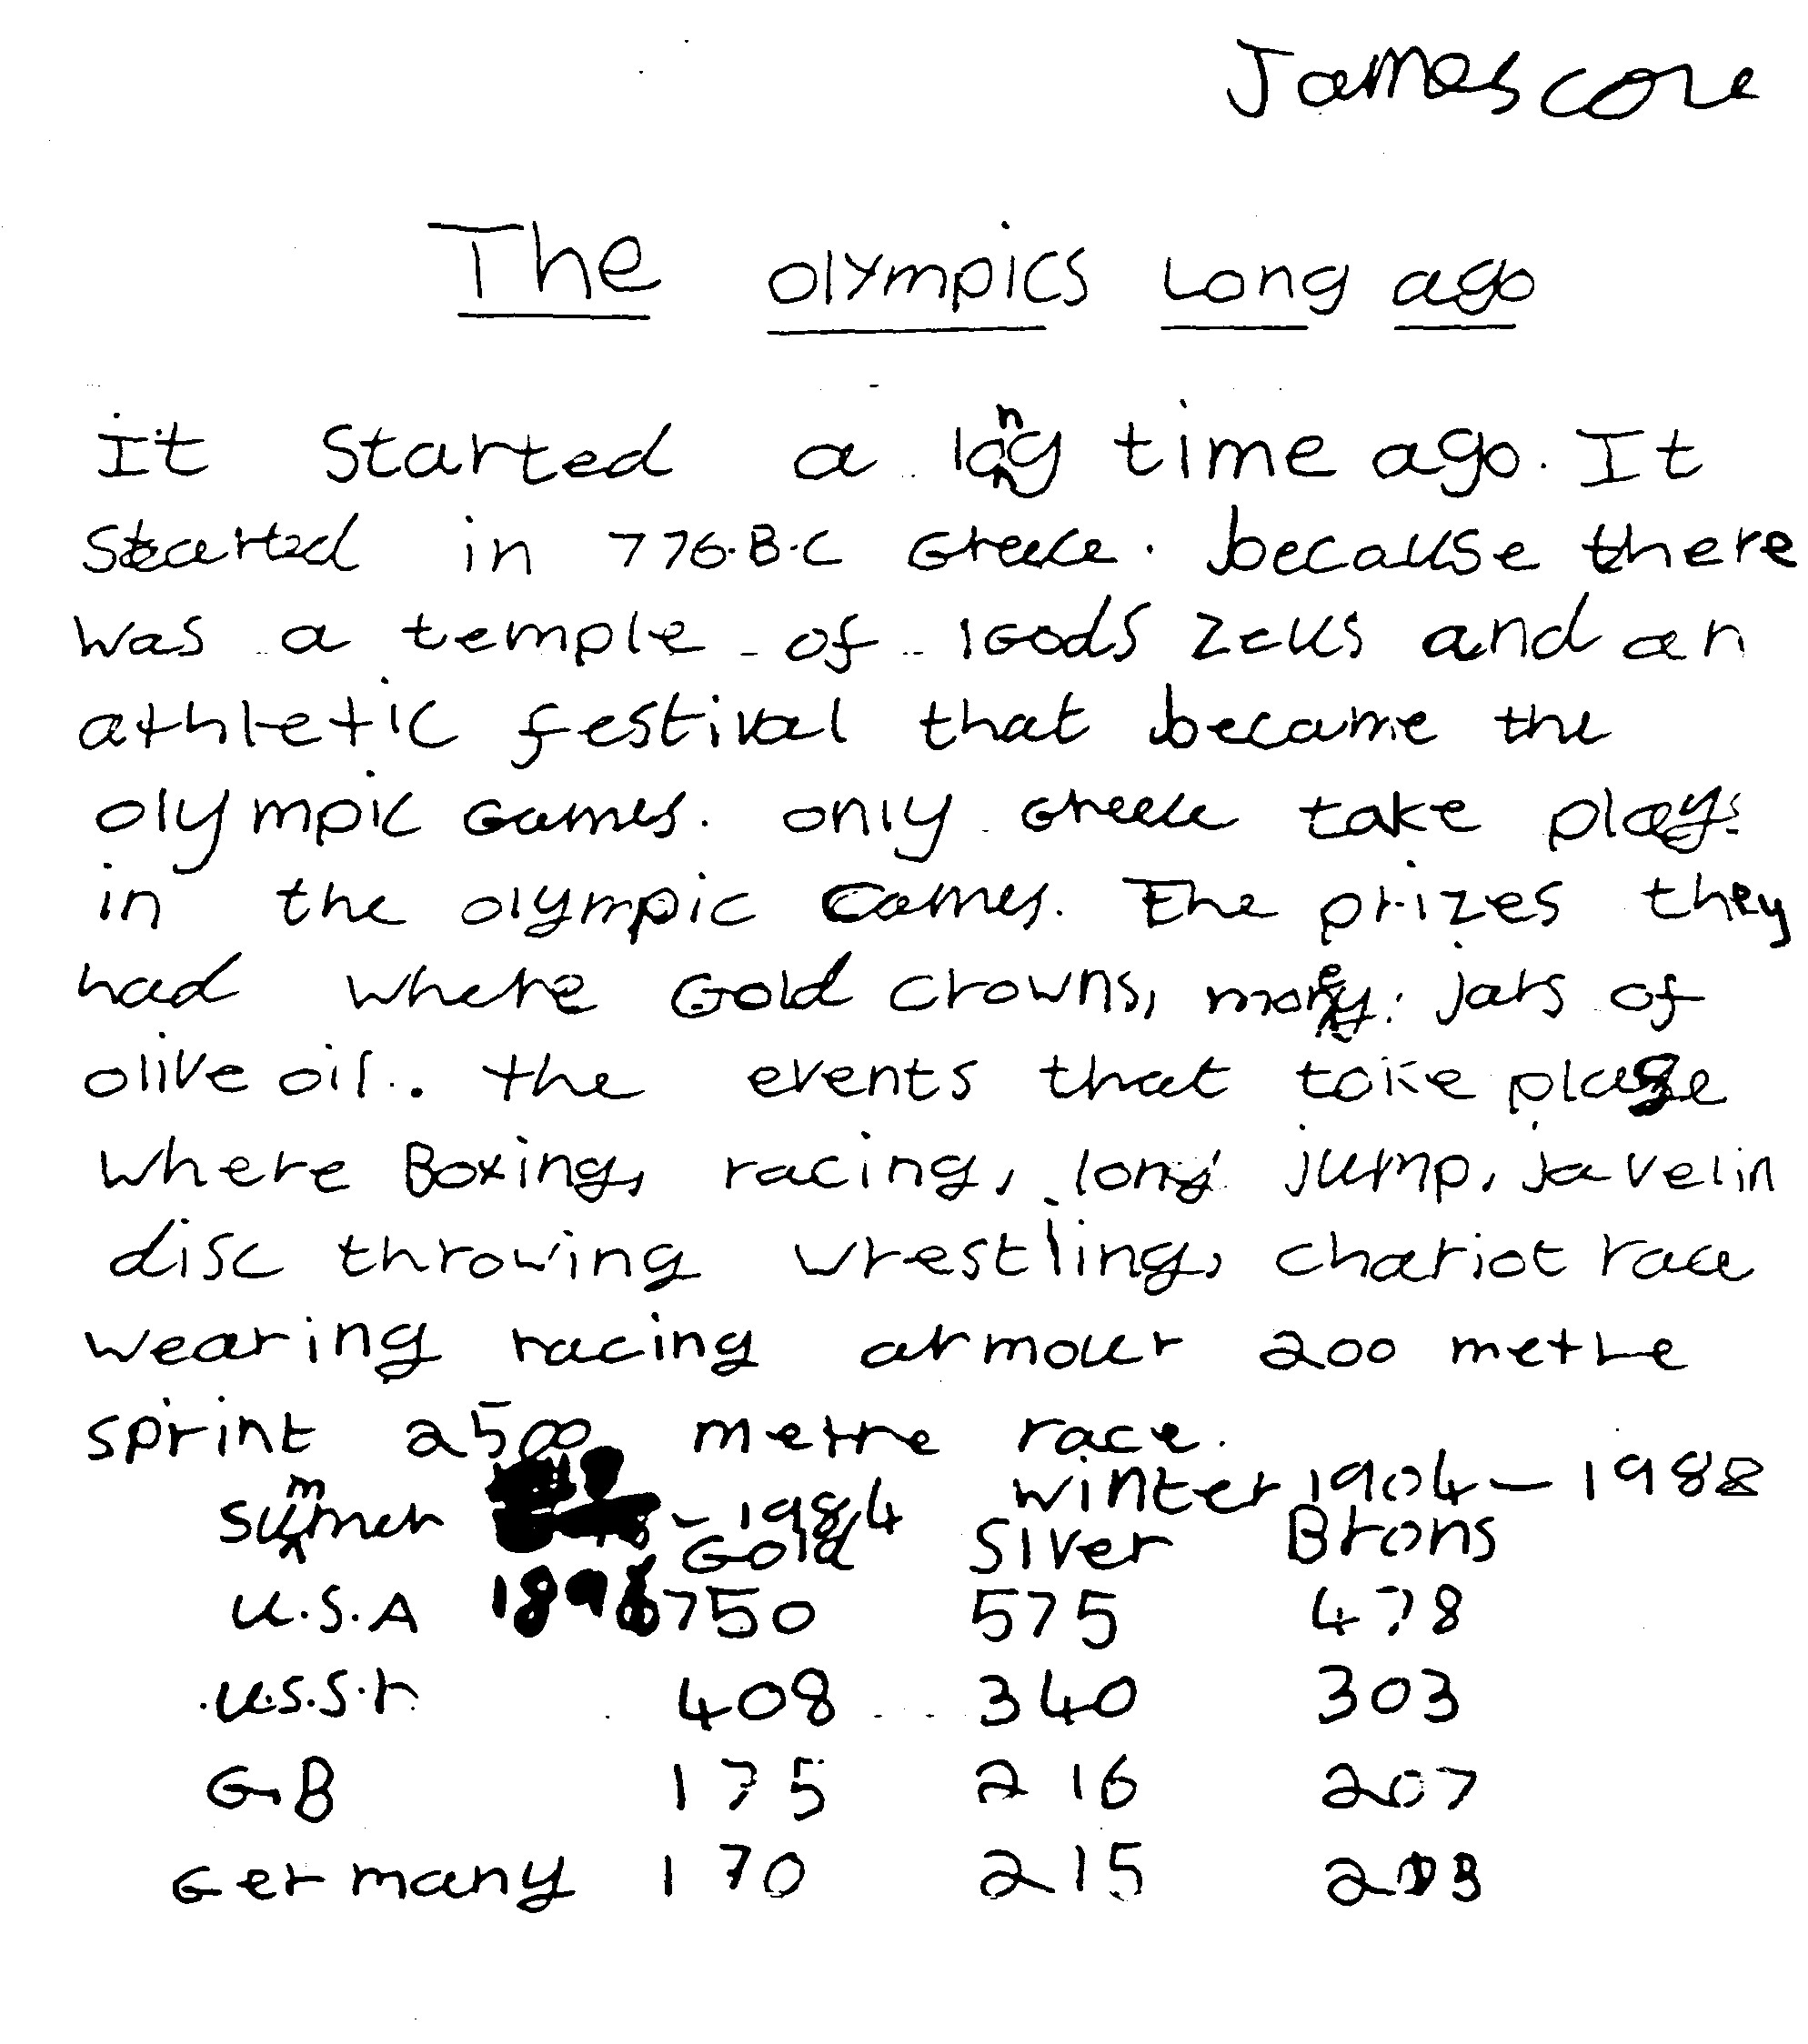 James core
The olympics Long ago
It started a long time ago. It
Started in 776.B.C Greece. because there
was a temple of 1Gods Zeus and an
athletic festival that became the
olympic Games. only Greece take play
in the olympic Games. The prizes they
had where Gold crowns, money. jars of
olive oil.. the events that take place
where Boxing, racing, long jump, javelin
disc throwing wrestling, chariot race
wearing racing armour 200 metre
sprint 2500 metre race.
Summer - 1984 winter 1904 - 1988
Gold Slver Brons
U.S.A 1896 750 575 478
U.S.S.r 408 340 303
G.B 175 216 207
Germany 170 215